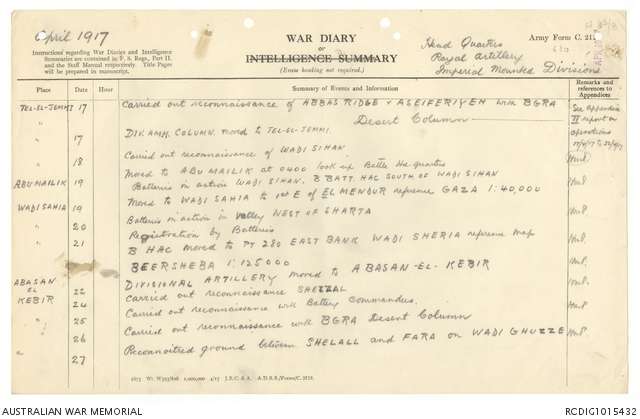 April 1917
WAR DIARY
OR
INTELLIGENCE SUMMARY
(Erase heading not required.)
Army Form C. 2118.
Head Quarters
Royal Artillery
Imperial Mounted Division
Instructions regarding War Diaries and Intelligence
Summaries are contained in F. S. Regs., Part II.
and the Staff Manual respectively. Title Pages
will be prepared in manuscript.
Place Date Hour Summary of Events and Information Remarks and references to Appendices
TEL-EL-JEMMI 17 Carried out reconnaissance of ABBAS RIDGE & ASEIFERIYEH with BGRA
Desert Column
See Appendix
II report on
operations
" 17 DIV. AMM. COLUMN. moved to TEL-EL-JEMMI.
" 18 Carried out reconnaissance of WADI SIHAN
ABU MAILIK 19 Moved to ABU MAILIK at 0400 took up Battle Hd. quarters
Batteries in action WADI SIHAN. B BATT. HAC SOUTH OF WADI SIHAN
WADI SAHIA 19 Moved to WADI SAHIA to 1st E of EL MENDUR reference GAZA 1:40,000
" 20 Batteries in action in valley WEST OF SHARTA
Registration by Batteries
" 21 B HAC moved to PT 280 EAST BANK WADI SHERIA reference map
BEERSHEBA 1:125000
ABASAN EL KEBIR 22 DIVISIONAL ARTILLERY moved to ABASAN-EL-KEBIR
24 Carried out reconnaissance SHELLAL
" 25 Carried out reconnaissance with Battery Commanders.
" 26 Carried out reconnaissance with BGRA Desert Column
" 27 Reconnoitred ground between SHELALL and FARA on WADI GHUZZE
AUSTRALIAN WAR MEMORIAL
RCDIG1015432